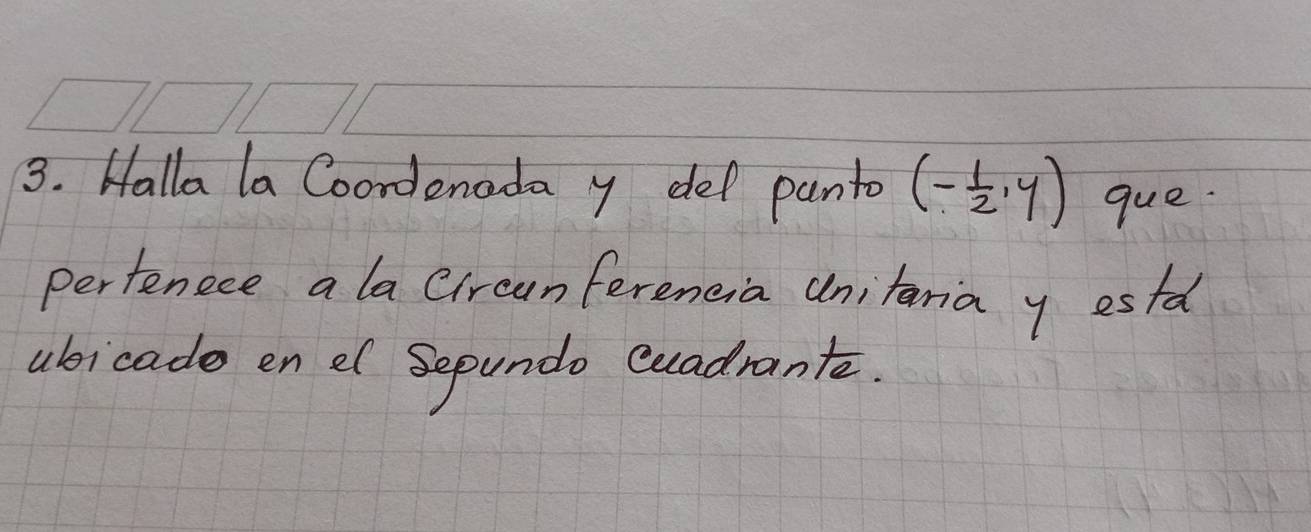 3. Halla la Coordenada y del punto (-1/2, y) que
pertenece a la Circunferencia Unitaria y está
ubicado en el Segundo cuadrante.